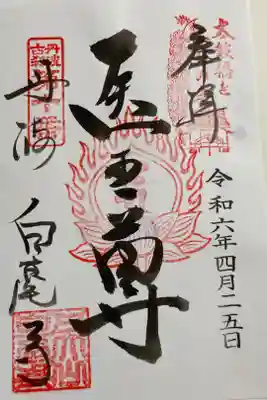 奉拝
令和六年四月二五日
医王尊
丹波 白毫寺